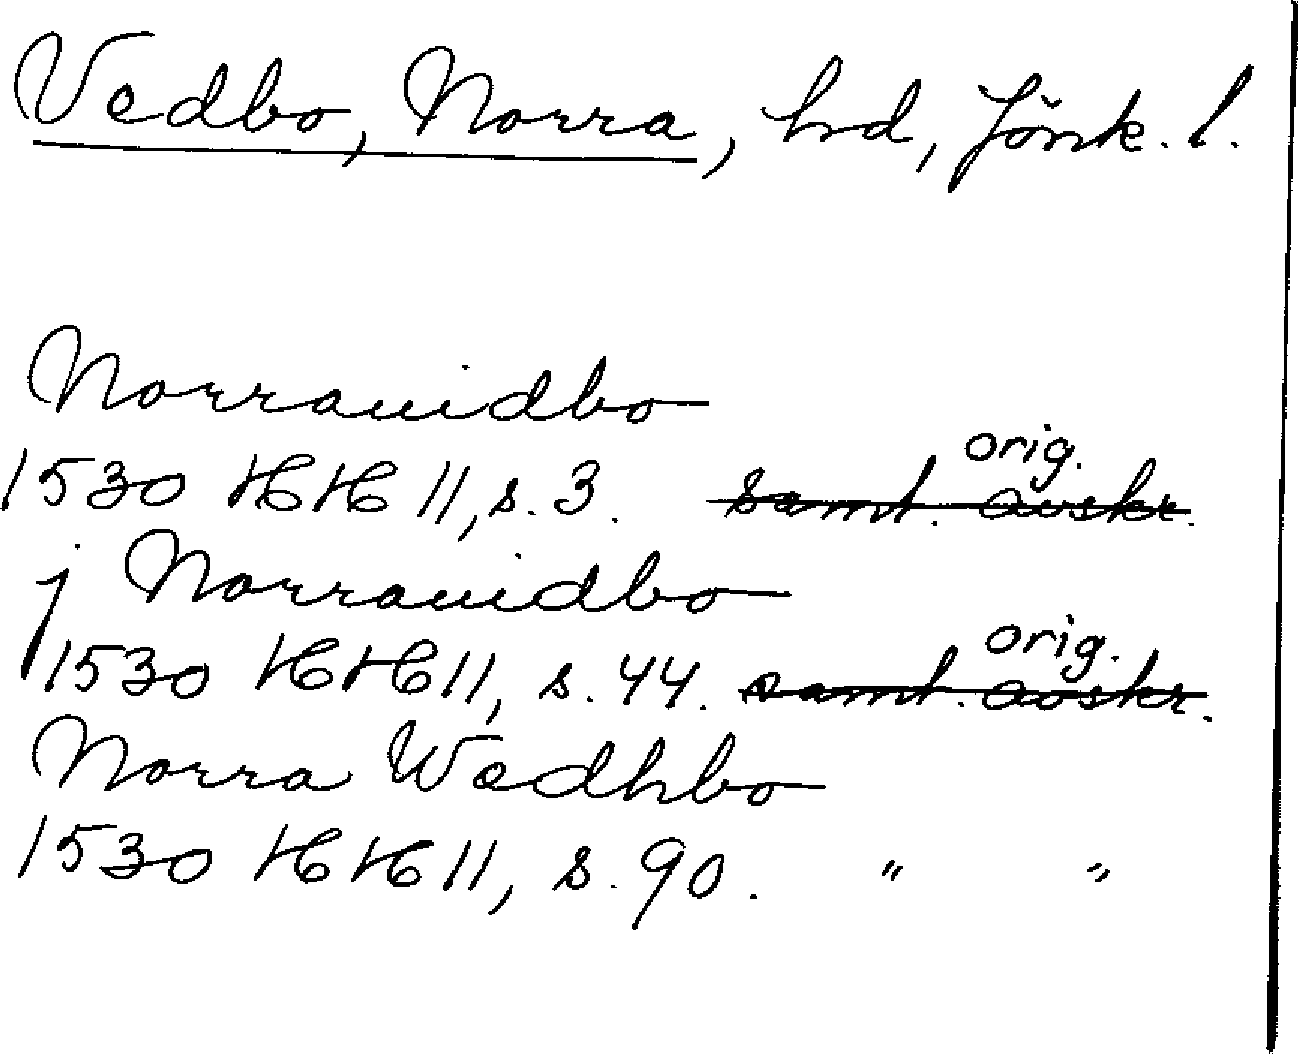 Vedbo, Norra, hd, Jönk. l.
Norrauidbo
orig.
1530 HH 11, s. 3. samt. avskr.
j Norrauidbo
orig.
1530 HH 11, s. 44. samt. avskr.
Norra Wedhbo
1530 HH 11, s. 90. " "